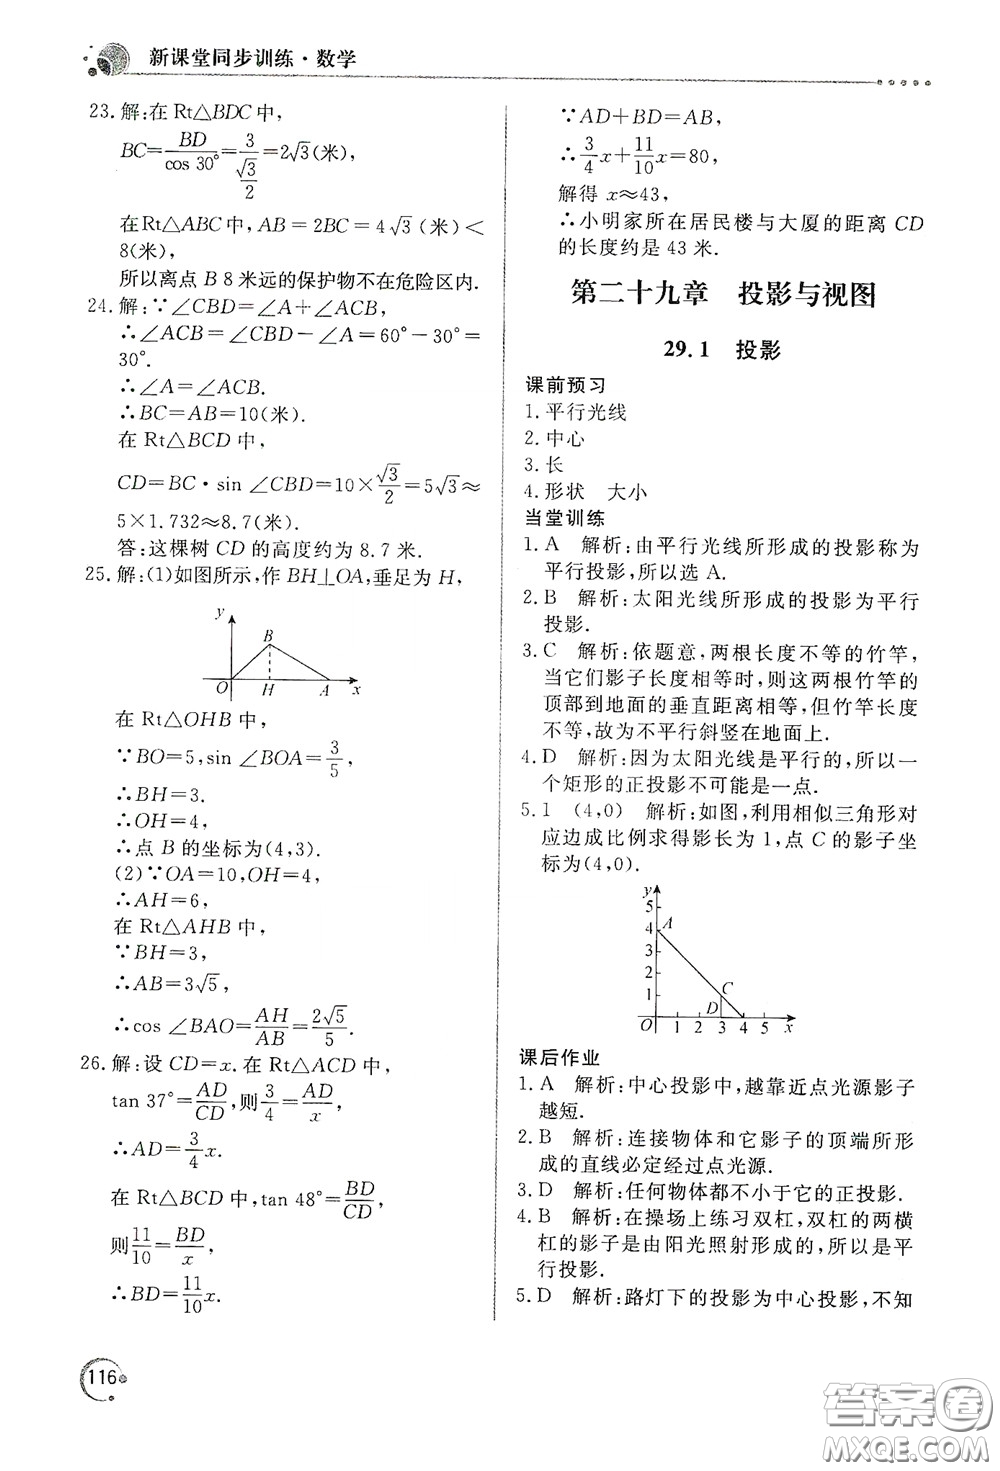 新课堂同步训练·数学
23.解:在Rt△BDC中,
BC=BD/cos 30°=3/(√3/2)=2√3(米),
在Rt△ABC中,AB=2BC=4√3(米)<
8(米),
所以离点B 8米远的保护物不在危险区内.
24.解:∵∠CBD=∠A+∠ACB,
∴∠ACB=∠CBD-∠A=60°-30°=
30°.
∴∠A=∠ACB.
∴BC=AB=10(米).
在Rt△BCD中,
CD=BC·sin∠CBD=10×√3/2=5√3≈
5×1.732≈8.7(米).
答:这棵树CD的高度约为8.7米.
25.解:(1)如图所示,作BH⊥OA,垂足为H,
y
B
O H A x
在Rt△OHB中,
∵BO=5,sin∠BOA=3/5,
∴BH=3.
∴OH=4,
∴点B的坐标为(4,3).
(2)∵OA=10,OH=4,
∴AH=6,
在Rt△AHB中,
∵BH=3,
∴AB=3√5,
∴cos∠BAO=AH/AB=2√5/5.
26.解:设CD=x.在Rt△ACD中,
tan 37°=AD/CD,则3/4=AD/x,
∴AD=3/4x.
在Rt△BCD中,tan 48°=BD/CD,
则11/10=BD/x,
∴BD=11/10x.
∵AD+BD=AB,
∴3/4x+11/10x=80,
解得x≈43,
∴小明家所在居民楼与大厦的距离CD
的长度约是43米.
第二十九章 投影与视图
29.1 投影
课前预习
1.平行光线
2.中心
3.长
4.形状 大小
当堂训练
1.A 解析:由平行光线所形成的投影称为
平行投影,所以选A.
2.B 解析:太阳光线所形成的投影为平行
投影.
3.C 解析:依题意,两根长度不等的竹竿,
当它们影子长度相等时,则这两根竹竿的
顶部到地面的垂直距离相等,但竹竿长度
不等,故为不平行斜竖在地面上.
4.D 解析:因为太阳光线是平行的,所以一
个矩形的正投影不可能是一点.
5.1 (4,0) 解析:如图,利用相似三角形对
应边成比例求得影长为1,点C的影子坐
标为(4,0).
y
5
4 A
3
2
1 D C
O 1 2 3 4 5 x
课后作业
1.A 解析:中心投影中,越靠近点光源影子
越短.
2.B 解析:连接物体和它影子的顶端所形
成的直线必定经过点光源.
3.D 解析:任何物体都不小于它的正投影.
4.B 解析:在操场上练习双杠,双杠的两横
杠的影子是由阳光照射形成的,所以是平
行投影.
5.D 解析:路灯下的投影为中心投影,不知
116
答案圈
MXQE.COM